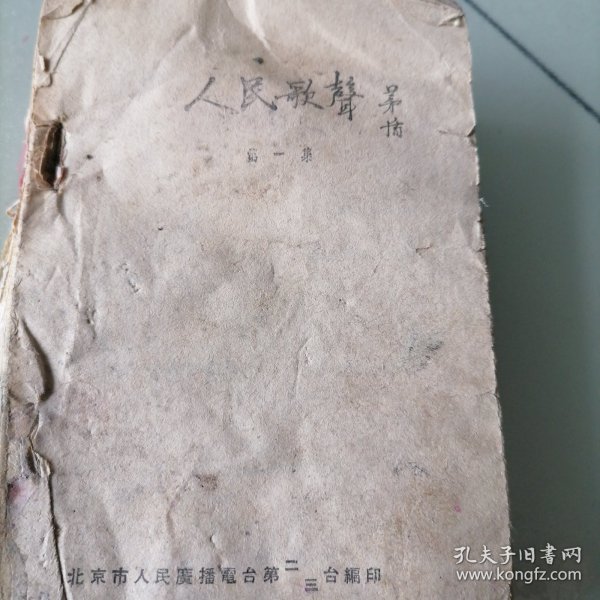 人民歌聲
茅盾
第一集
北京市人民廣播電台第二三台編印
孔夫子旧书网
www.kongfz.com